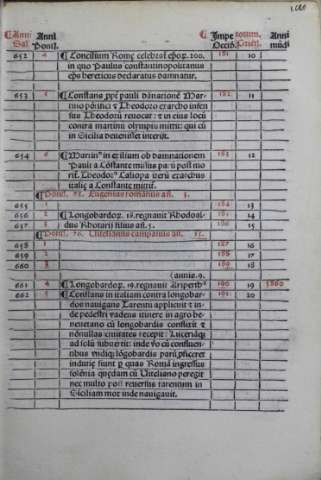 Anni Sal. Anni Pont. Impe Occid. Anni mūdi
652 4 Concilium Romę celebrat epōp. 100. 181 10
in quo Paulus constantinopolitanus
eps hereticus declaratus damnatur.
653 5 Constans ppē pauli dānationē Mar- 182 11
tino pōtifici & Theodoro exarcho infen
sus Theodorū reuocat: & in eius locū
contra martinū olympiū mittit: qui cū
in Sicilia deuenisset interijt.
654 6 Martin⁹ in exilium ob damnationem 183 12
Pauli a Cōstante missus
Theodor⁹ Caliopa uerū exarchus
italię a Constante mittit.
Pont. 75. Eugenius romanus an. 3.
655 1 184 13
656 2 Longobardoꝝ. 18. regnauit Rhodoal- 185 14
657 3 dus Rhotarij filius an. 5. 186 15
Pont. 76. Vitelianus campanus an. 15.
658 1 187 16
659 2 188 17
660 3 189 18
(annis. 9.
661 4 Longobardoꝝ. 19. regnauit Aripert⁹ 190 19 5860
662 5 Constans in italiam contra longobar- 191 20
dos nauigans Tarenti applicuit & in-
de pedestri uadens itinere in agro be-
neuetano cū longobardis conflixit &
nōnullas ciuitates recepit: Luceriāq;
ad solū subuertit: inde
ribus vndiq; lōgobardis parū pficeret
indutię fiunt p quas Romā ingressus
solēnia quędam cū Viteliano peregit
nec multo post reuersus tarentum in
Siciliam mox inde nauigauit.